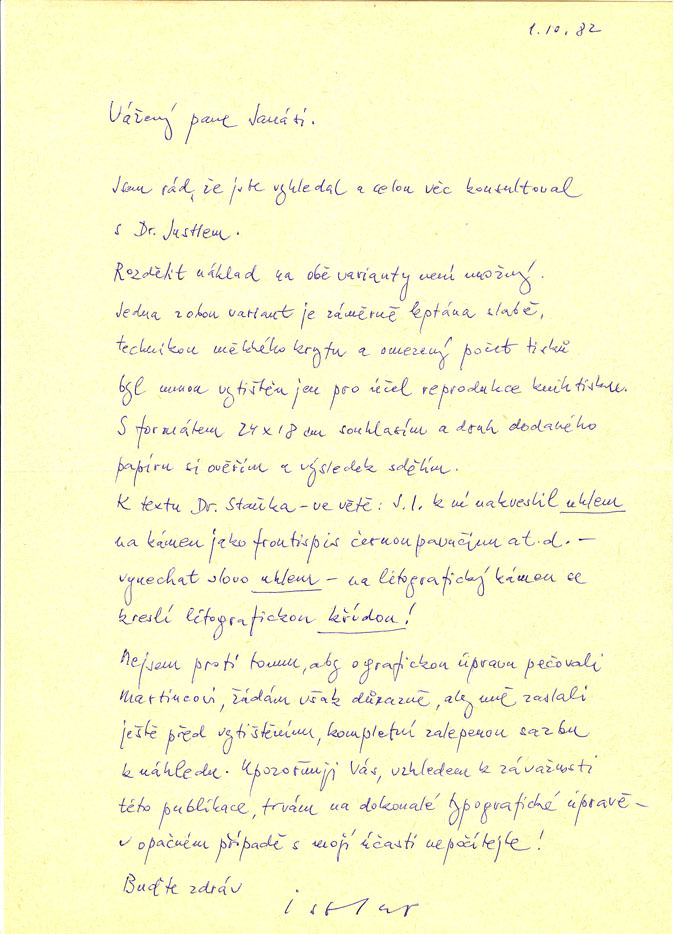 1.10.82
Vážený pane Janáti.
Jsem rád, že jste vyhledal a celou věc konsultoval
s Dr. Justlem.
Rozdělit náklad na obě varianty není možný.
Jedna z obou variant je záměrně leptána slabě,
technikou měkkého krytu a omezený počet tisků
byl mnou vytištěn jen pro účel reprodukce knihtiskem.
S formátem 24 x 18 cm souhlasím a druh dodaného
papíru si ověřím a výsledek sdělím.
K textu Dr. Staňka - ve větě: J.I. k ní nakreslil uhlem
na kámen jako frontispis černou pavučinu a t.d. -
vynechat slovo uhlem - na litografický kámen se
kreslí litografickou křídou!
Nejsem proti tomu, aby o grafickou úpravu pečovali
Martincovi, žádám však důrazně, aby mně zaslali
ještě před vytištěním, kompletní zalepenou sazbu
k náhledu. Upozorňuji Vás, vzhledem k závažnosti
této publikace, trvám na dokonalé typografické úpravě -
v opačném případě s mojí účastí nepočítejte!
Buďte zdráv
istler